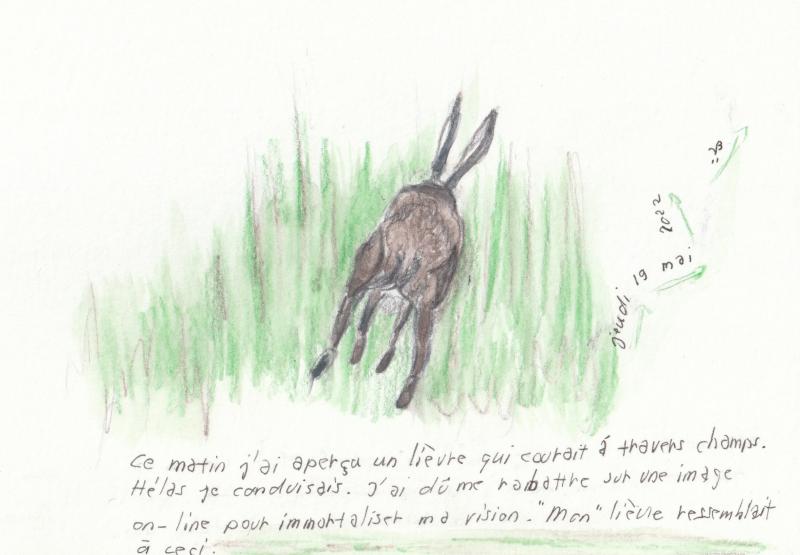 jeudi 19 mai 2022
Ce matin j'ai aperçu un lièvre qui courait à travers champs.
Hélas je conduisais. J'ai dû me rabattre sur une image
on-line pour immortaliser ma vision. "Mon" lièvre ressemblait
à ceci.